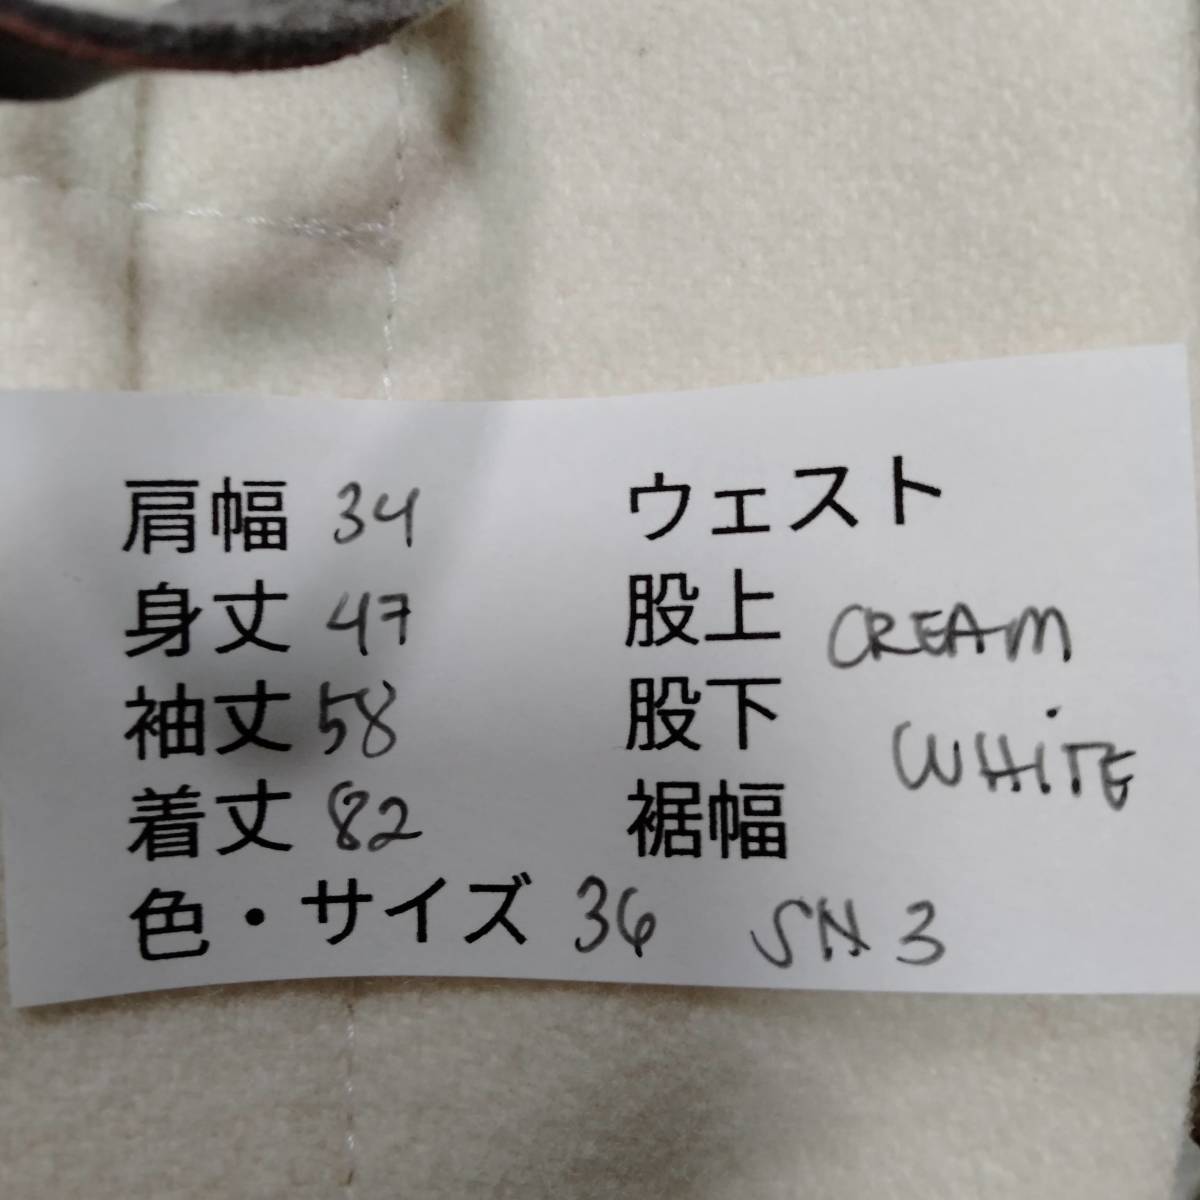 肩幅 34
身丈 47
袖丈 58
着丈 82
ウェスト
股上
股下
裾幅
CREAM
WHITE
色・サイズ 36 SN 3